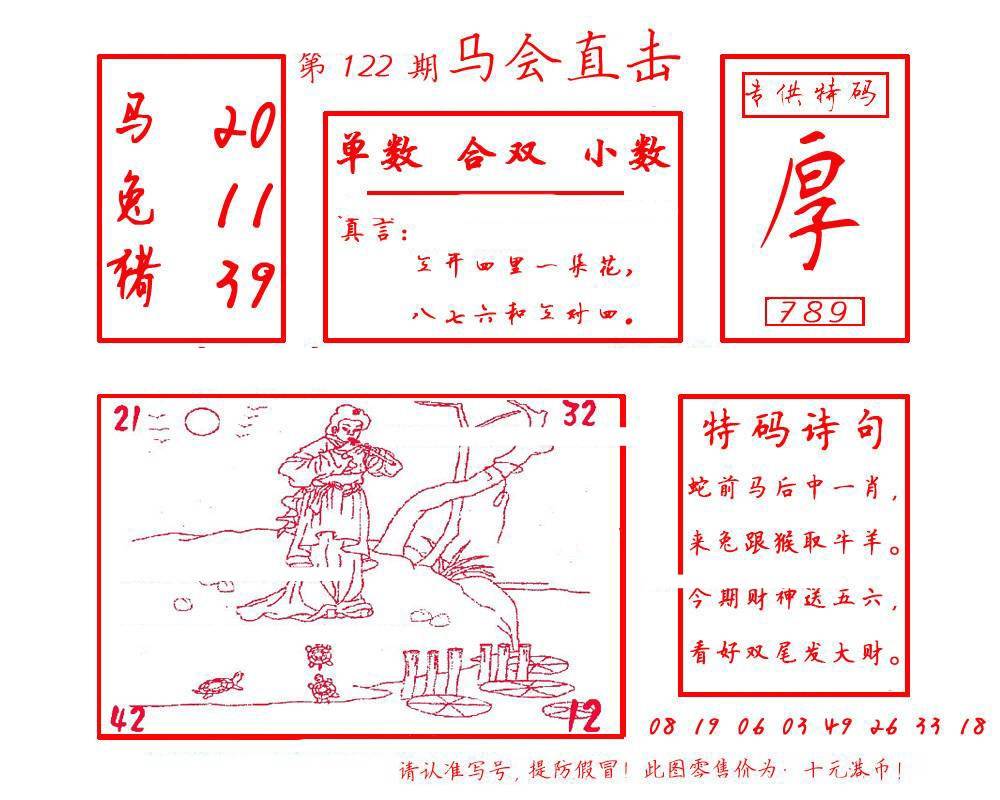 第 122 期 马会直击
马 20
兔 11
猪 39
单数 合双 小数
真言：
三开四里一朵花，
八七六和三对四。
专供特码
厚
789
21
32
42
12
特码诗句
蛇前马后中一肖，
来兔跟猴取牛羊。
今期财神送五六，
看好双尾发大财。
08 19 06 03 49 26 33 18
请认准写号，提防假冒！此图零售价为·十元港币！